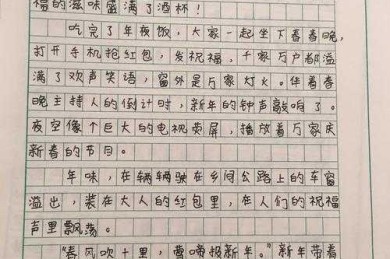 福的滋味蛮满了酒杯！
吃完了年夜饭，大家一起坐下看春晚，
打开手机抢红包，发祝福，千家万户都溢
满了欢声笑语，窗外是万家灯火。伴着春
晚主持人的倒计时，新年的钟声敲响了。
夜空像个巨大的电视荧屏，播放着万家庆
新春的节目。
年味，在辆辆驶在乡间公路上的车窗
溢出，装在大人的红包里，在人们的祝福
声里飘荡。
“春风吹十里，黄啼报新年。”新年带着